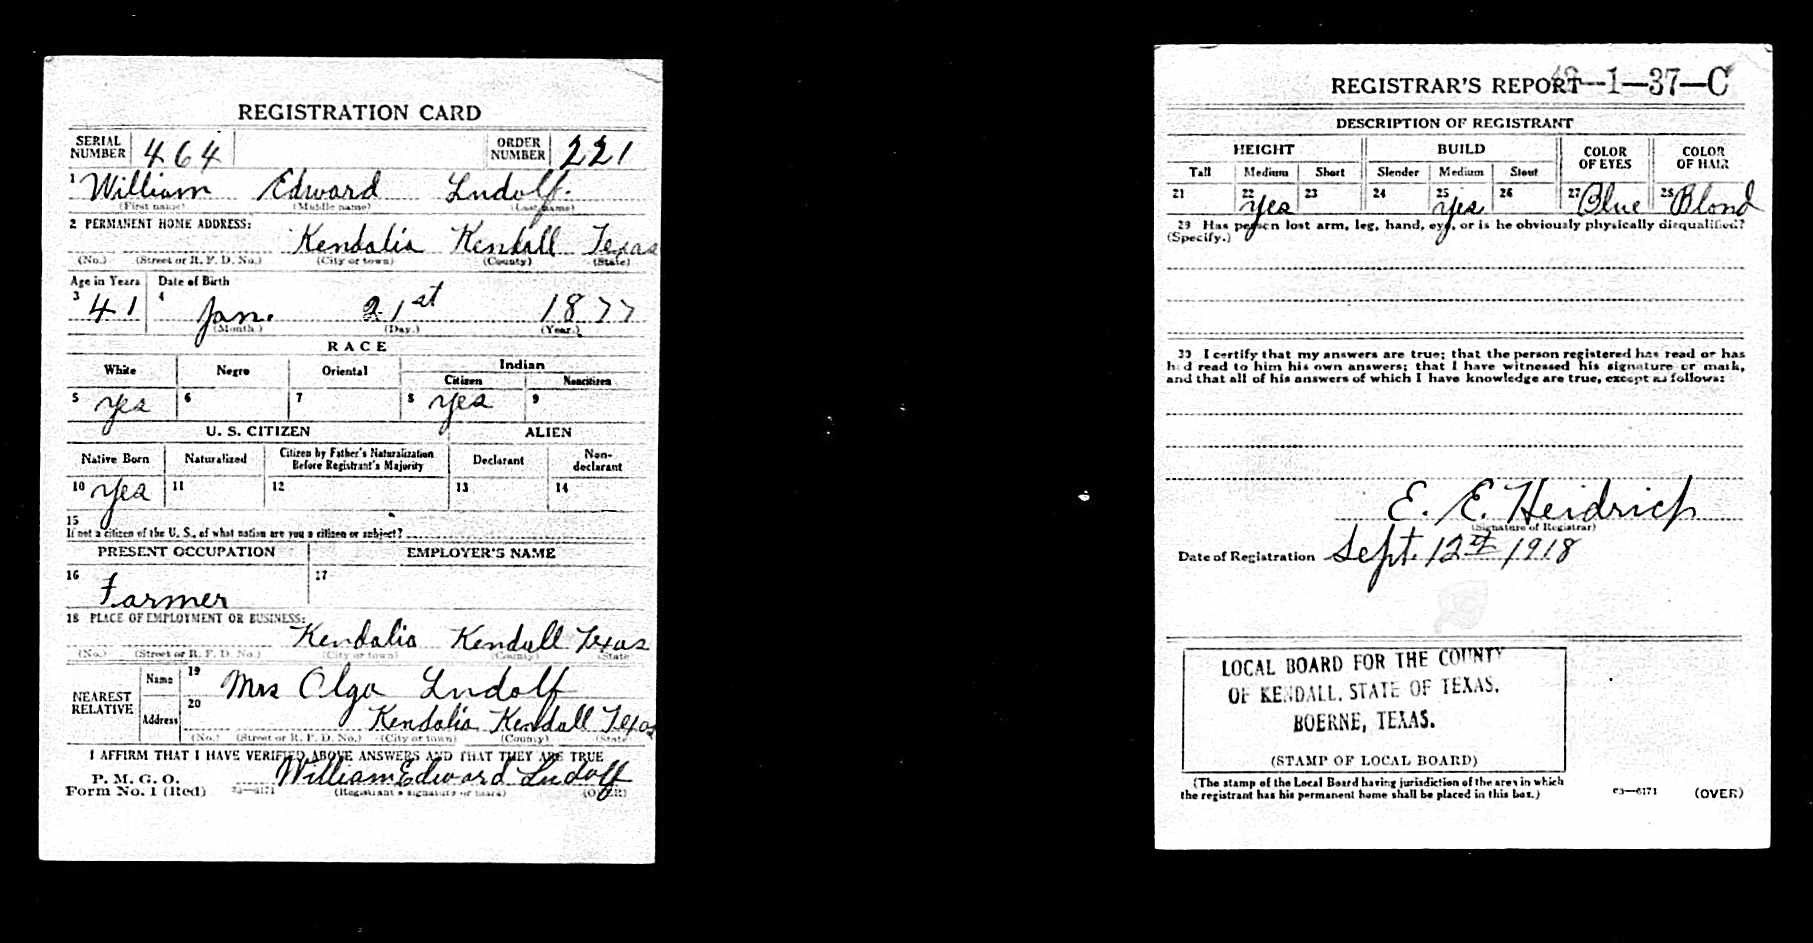 REGISTRATION CARD
SERIAL NUMBER 464 ORDER NUMBER 221
1 William Edward Ludolf.
(First name) (Middle name) (Last name)
2 PERMANENT HOME ADDRESS:
Kendalia Kendall Texas
(No.) (Street or R. F. D. No.) (City or town) (County) (State)
Age in Years Date of Birth
3 41 4 Jan. 21st 1877
(Month.) (Day.) (Year.)
RACE
White Negro Oriental Indian
Citizen Noncitizen
5 Yes 6 7 8 Yes 9
U. S. CITIZEN ALIEN
Native Born Naturalized Citizen by Father's Naturalization Before Registrant's Majority Declarant Non-declarant
10 Yes 11 12 13 14
15
If not a citizen of the U. S., of what nation are you a citizen or subject?
PRESENT OCCUPATION EMPLOYER'S NAME
16 Farmer 17
18 PLACE OF EMPLOYMENT OR BUSINESS:
Kendalia Kendall Texas
(No.) (Street or R. F. D. No.) (City or town) (County) (State)
NEAREST RELATIVE Name 19 Mrs Olga Ludolf
Address 20 Kendalia Kendall Texas
(No.) (Street or R. F. D. No.) (City or town) (County) (State)
I AFFIRM THAT I HAVE VERIFIED ABOVE ANSWERS AND THAT THEY ARE TRUE
P. M. G. O.
Form No. 1 (Red) 03—6171 William Edward Ludolf
(Registrant's signature or mark) (OVER)
REGISTRAR'S REPORT —1—37—C
DESCRIPTION OF REGISTRANT
HEIGHT BUILD COLOR OF EYES COLOR OF HAIR
Tall Medium Short Slender Medium Stout
21 22 Yes 23 24 25 Yes 26 27 Blue 28 Blond
29 Has person lost arm, leg, hand, eye, or is he obviously physically disqualified?
(Specify.)
30 I certify that my answers are true; that the person registered has read or has
had read to him his own answers; that I have witnessed his signature or mark,
and that all of his answers of which I have knowledge are true, except as follows:
E. E. Heidrich
(Signature of Registrar)
Date of Registration Sept. 12th 1918
LOCAL BOARD FOR THE COUNTY
OF KENDALL, STATE OF TEXAS.
BOERNE, TEXAS.
(STAMP OF LOCAL BOARD)
(The stamp of the Local Board having jurisdiction of the area in which
the registrant has his permanent home shall be placed in this box.)
03—6171 (OVER)